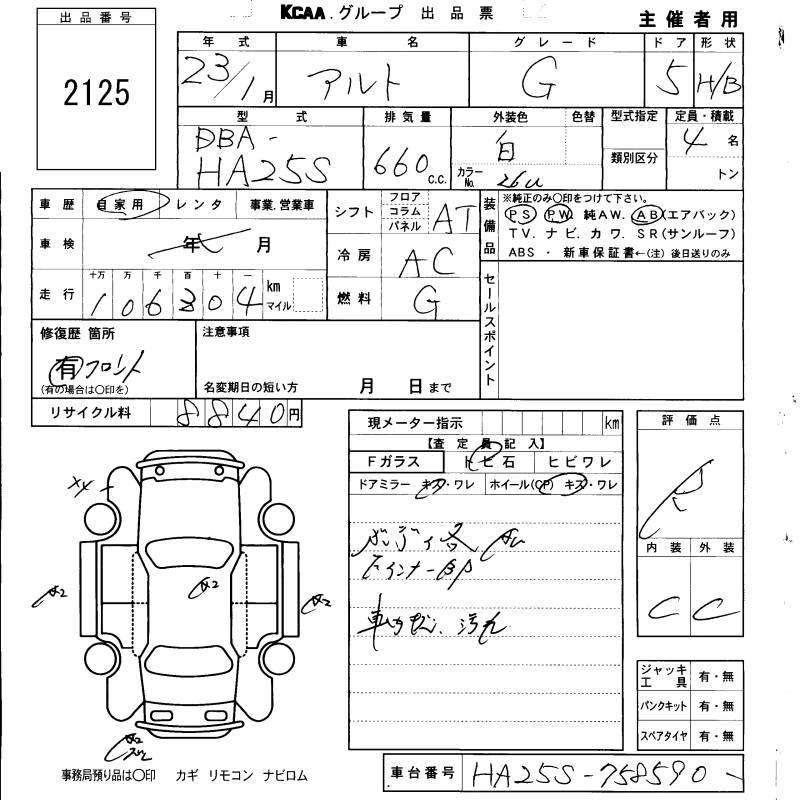 KCAA.グループ 出品票
主催者用
出品番号
2125
年式 車名 グレード ドア 形状
23/1月 アルト G 5 H/B
型式 排気量 外装色 色替 型式指定 定員・積載
DBA-
HA25S
660 c.c.
白
カラーNo. 26U
類別区分
4名
トン
車歴 自家用 レンタ 事業.営業車
車検 年 月
走行 十万 万 千 百 十 一
106304 km マイル
シフト フロア コラム パネル AT
冷房 AC
燃料 G
装備品
※純正のみ〇印をつけて下さい。
PS PW 純AW. AB(エアバック)
TV. ナビ. カワ. SR(サンルーフ)
ABS ・ 新車保証書←(注) 後日送りのみ
セールスポイント
修復歴 箇所
有 フロント
(有の場合は〇印を)
注意事項
名変期日の短い方 月 日まで
リサイクル料 8840円
現メーター指示 km
【査定員記入】
Fガラス トビ石 ヒビワレ
ドアミラー キズ・ワレ ホイール(CP) キズ・ワレ
ボディ各
下インナーBP
車内 汚れ
評価点
R
内装 外装
C C
ジャッキ工具 有・無
パンクキット 有・無
スペアタイヤ 有・無
A2
A2
A2
事務局預り品は〇印 カギ リモコン ナビロム
車台番号 HA25S-758590